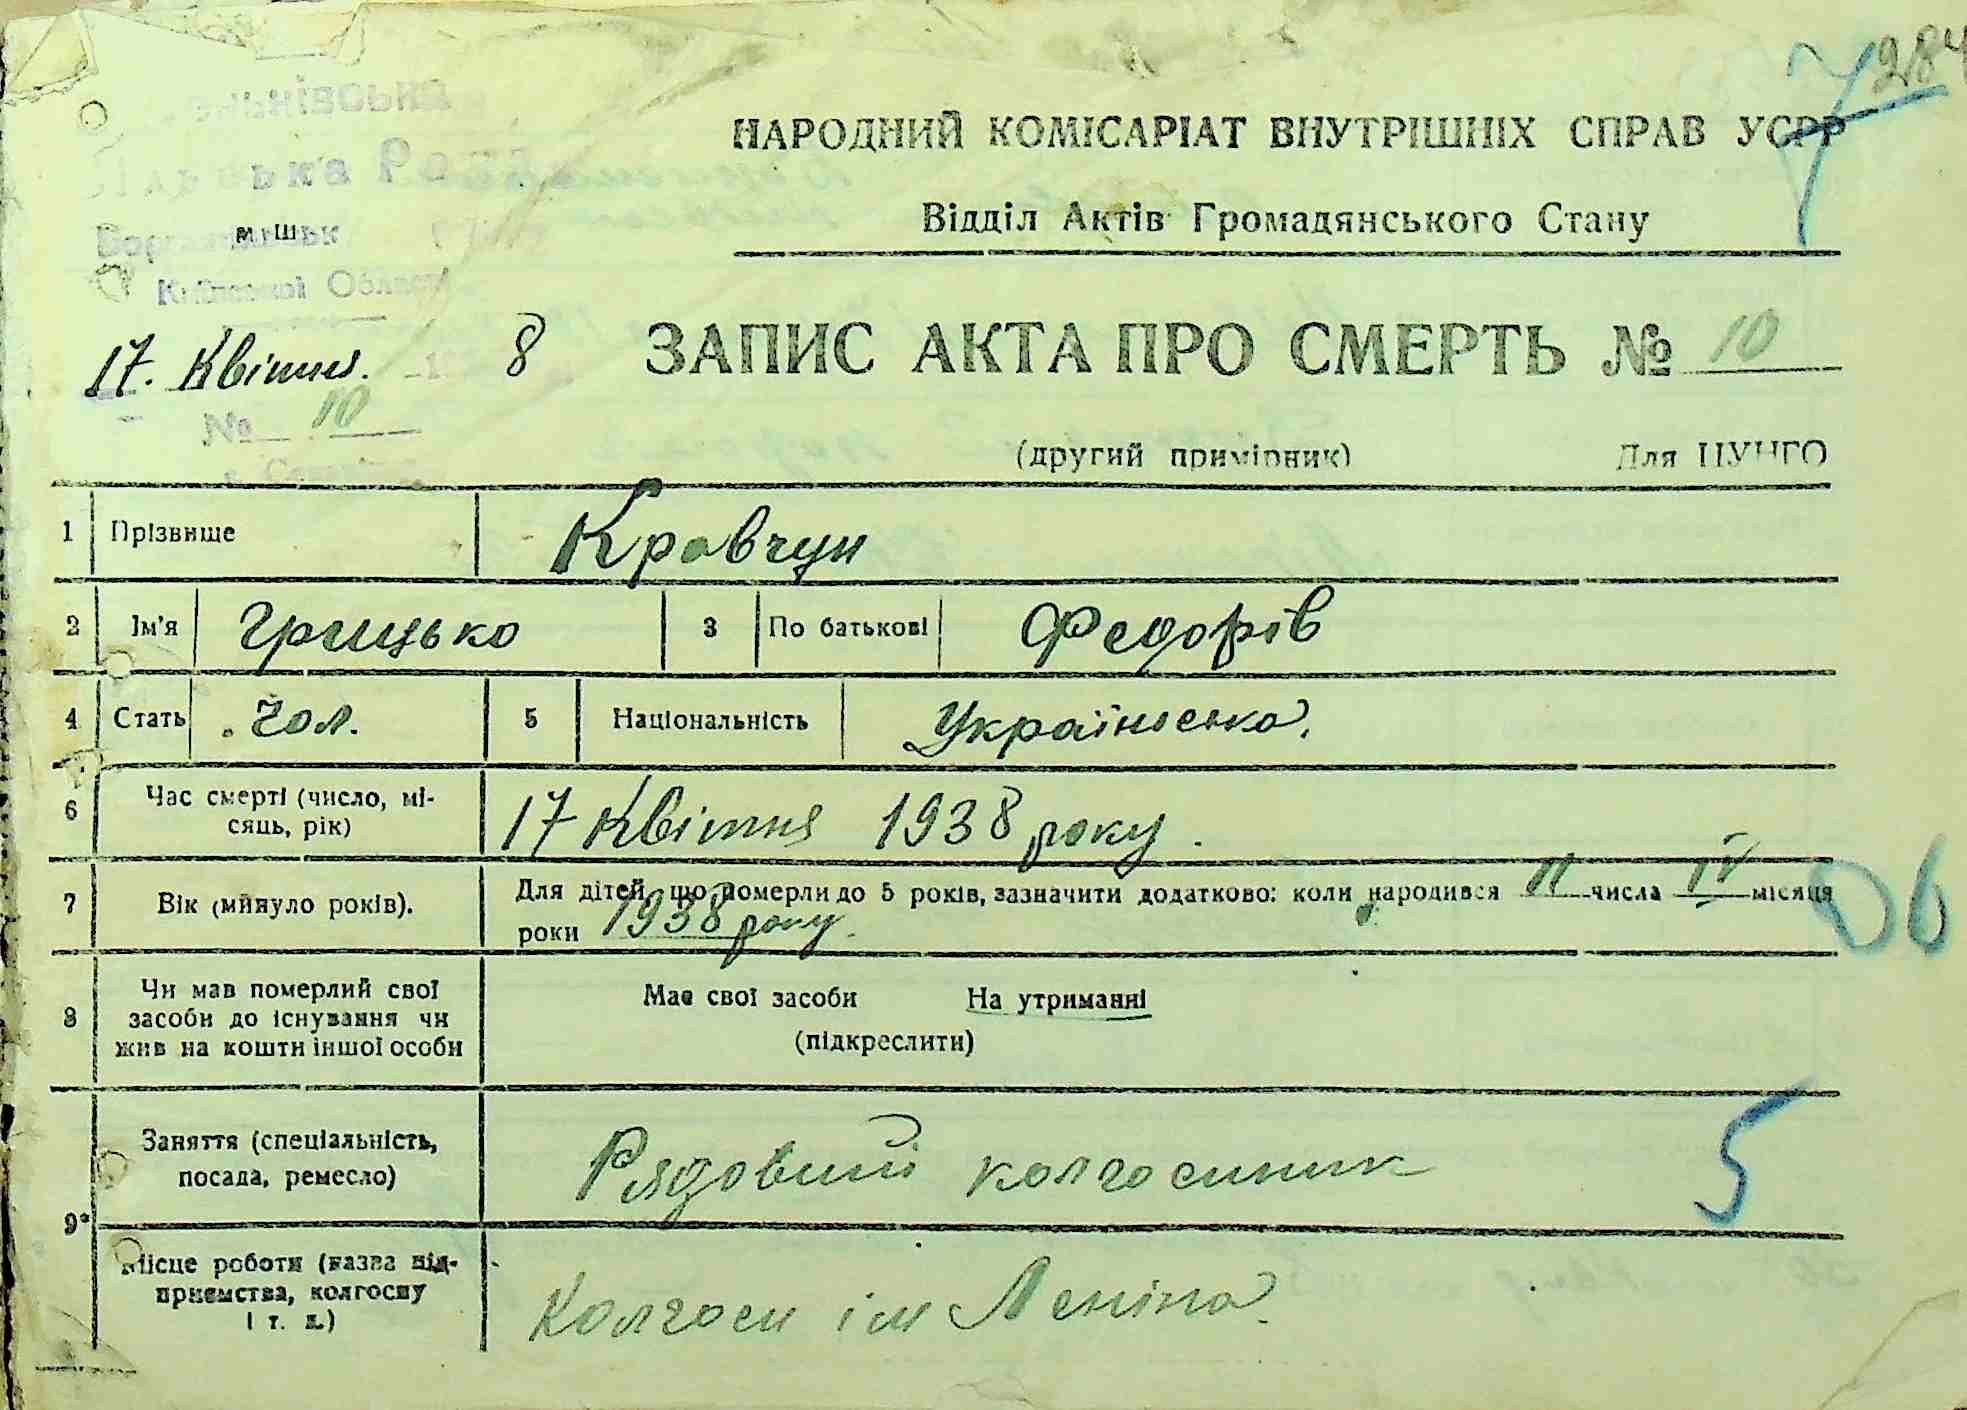 284
НАРОДНИЙ КОМІСАРІАТ ВНУТРІШНІХ СПРАВ УСРР
Відділ Актів Громадянського Стану
Київської Області
17. Квітня. 8
№ 10
ЗАПИС АКТА ПРО СМЕРТЬ № 10
(другий примірник) Для ЦУНГО
1 Прізвище Кравчун
2 Ім'я Грицько 3 По батькові Федорів
4 Стать Чол. 5 Національність Українська.
6 Час смерті (число, мі-
сяць, рік) 17 Квітня 1938 року.
7 Вік (минуло років). Для дітей, що померли до 5 років, зазначити додатково: коли народився 11 числа IV місяця
роки 1938 року.
06
8 Чи мав померлий свої
засоби до існування чи
жив на кошти іншої особи
Має свої засоби На утриманні
(підкреслити)
9 Заняття (спеціальність,
посада, ремесло) Рядовий колгоспник
5
Місце роботи (назва під-
приємства, колгоспу
і т. д.) Колгосп ім Леніна.